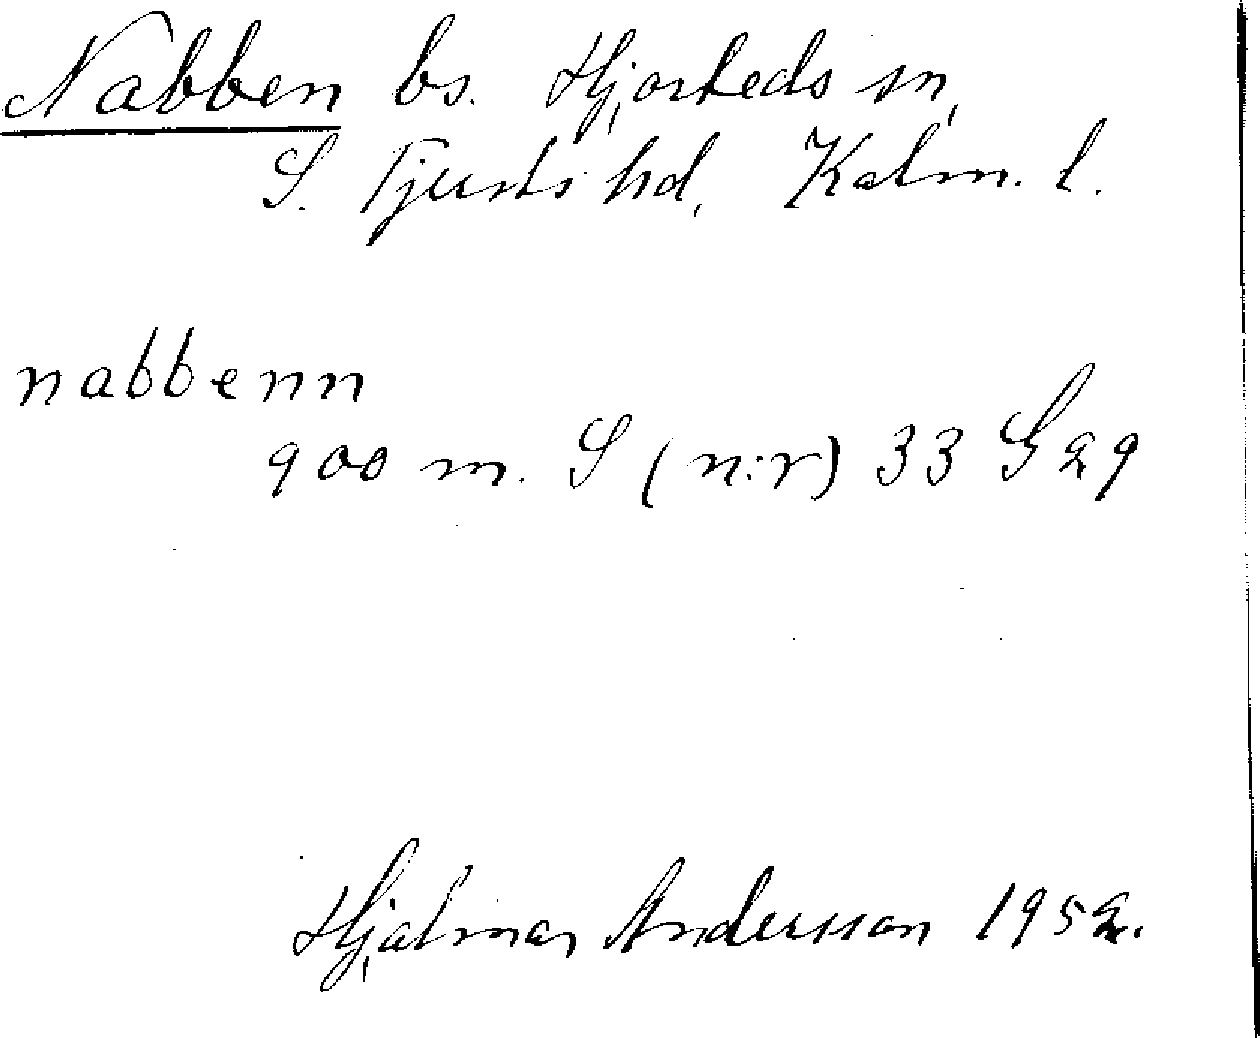 Nabben bs. Hjorteds sn,
S. Tjusts hd, Kalm. l.
nabbenn
900 m. S (n:r) 33 S 29
Hjalmar Andersson 1952.